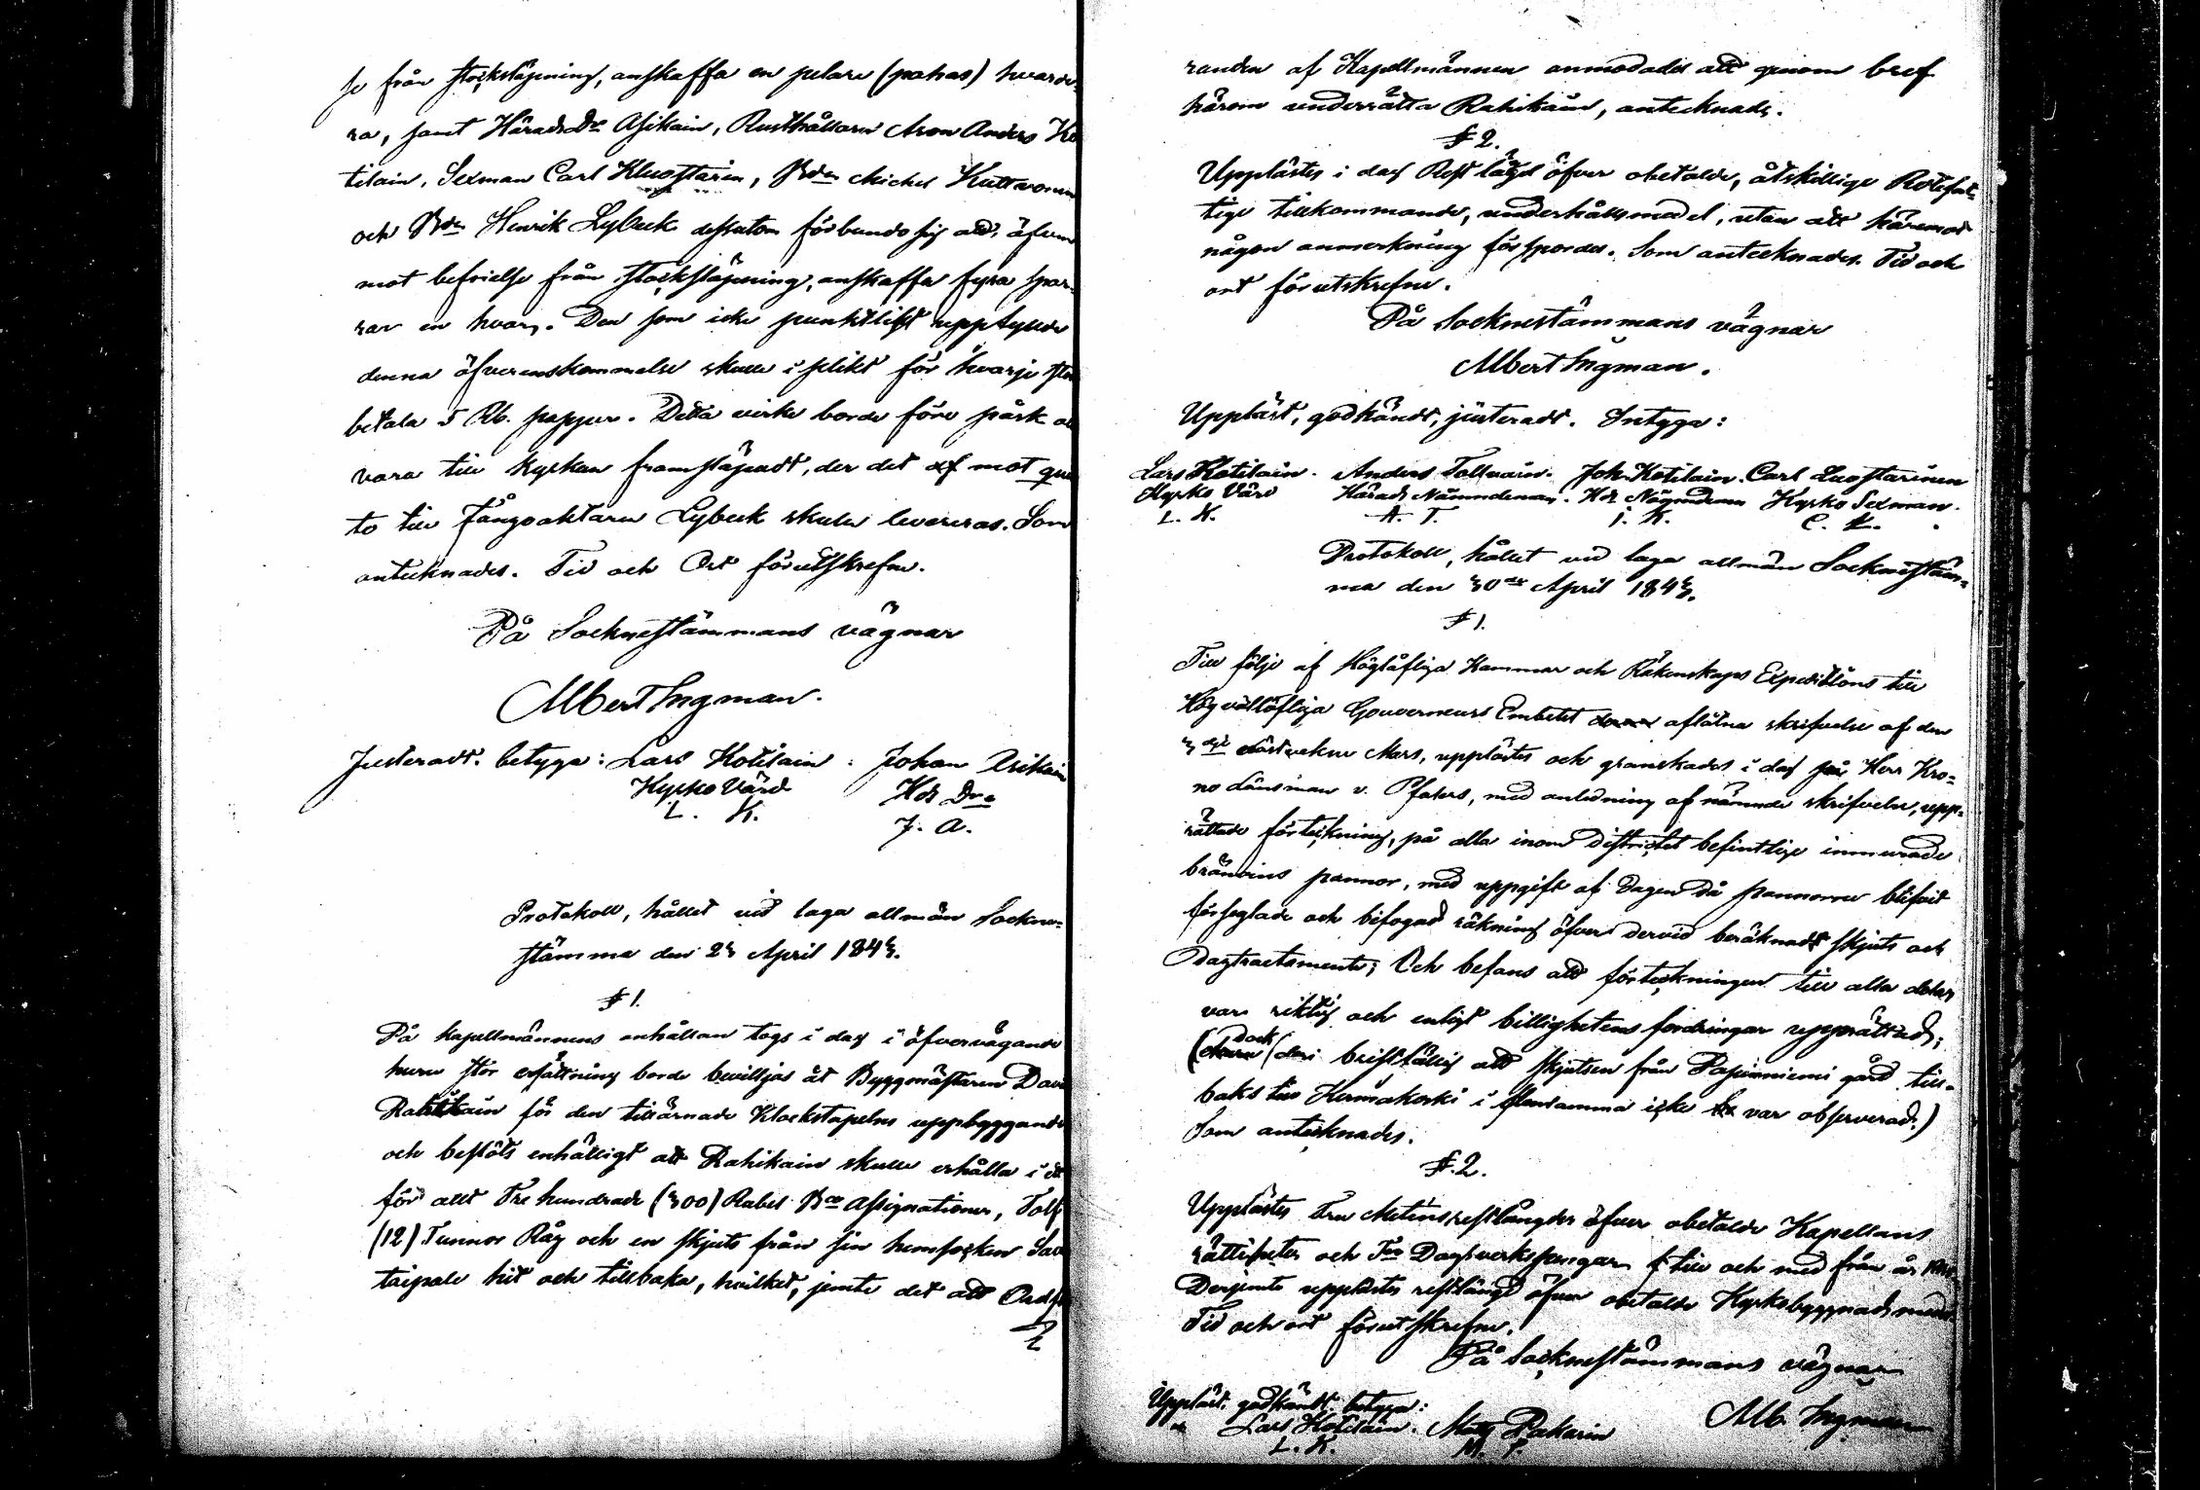 se från stockslöpning, anskaffa en pelare (patsas) hvarde-
ra, samt HäradsDr Asikain, Rusthållaren Aron Anders Ko
tilain, Sexman Carl Kluostarin, Bdn Michel Kuttvonen
och Bdn Henrik Lybeck dessutom förbundo sig att, äfven
mot befrielse från stockslöpning, anskaffa fyra spar-
rar en hvar. Den som icke punktligt uppfyllde
denna öfverenskommelse skulle i plikt för hvarje stock
betala 5 Rb. papper. Detta virke borde före påsk
vara till Kyrkan framsläpadt, der det af mot qvit-
to till Fångvaktaren Lybeck skulle levereras. Som
antecknades. Tid och Ort förutskrefne.
På Socknestämmans vägnar
Albert Ingman.
Justeradt, betyga: Lars Kotilain. Johan Asikain
Kyrko Värd Hds Dre
L. K. J. A.
Protokoll, hållet vid laga allmän Sockne-
stämma den 23 April 1843.
§ 1.
På Kapellmännens anhållan togs i dag i öfvervägande
huru stor ersättning borde beviljas åt Byggmästaren Davi
Rahikain för den tillärnade Klockstapelns uppbyggande
och beslöts enhälligt att Rahikain skulle erhålla i ett
för allt Tre hundrade (300) Rubel Bco Assignationer, Tolf
(12) Tunnor Råg och en skjuts från sin hemsocken Sa
taipale hit och tillbaka, hvilket, jemte det att Ordfö
randen af Kapellmännen anmodades att genom bref
härom underrätta Rahikain, antecknades.
§ 2.
Upplästes i dag Rest längd öfver obetalde, åtskillige Rotefat-
tige tillkommande, underhållsmedel, utan att häremot
någon anmerkning förspordes. Som antecknades. Tid och
ort förutskrefne.
På Socknestämmans vägnar
Albert Ingman.
Uppläst, godkändt, justeradt. Intyga:
Lars Kotilain. Anders Tollvain. Joh. Kotilain. Carl Luostarinen
Kyrko Värd Härads Nämndeman. Hds Nämndeman Kyrko Sexman.
L. K. A. T. J. K. C. L.
Protokoll, hållet vid laga allmän Socknestäm-
ma den 30de April 1843.
§ 1.
Till följe af Höglofliga Kammar och Räkenskaps Expeditions till
Högvällofliga Gouverneurs Embetet aflåtna skrifvelse af den
3dje sistvekne Mars, upplästes och granskades i dag Herr Kro-
no Länsman v. Pfalers, med anledning af nämnde skrifvelse, upp-
rättade förteckning, på alla inom Districtet befintlige inmurade
brännvins pannor, med uppgift af Dagen då pannorne blifvit
förseglade och bifogad räkning öfver dervid beräknadt skjuts och
dagtractamente; Och befans att förteckningen till alla delar
var riktig och enligt billighetens fordringar upprättad;
(dock deri bristfällig att skjutsen från Papinniemi gård till-
baks till Kermakoski i flensamma icke var observerad.)
Som antecknades.
§. 2.
Upplästes Fru Meténs restlängder öfver obetalde Kapellans
rättigheter och Dagsverkspengar till och med från år
Derjemte upplästes restlängd öfver obetalde Kyrkobyggnads medel.
Tid och ort förutskrefne.
På Socknestämmans vägnar
Alb. Ingman
Uppläst, godkändt betyga:
Lars Kotilain. Matts Pakarin
L. K. M. P.